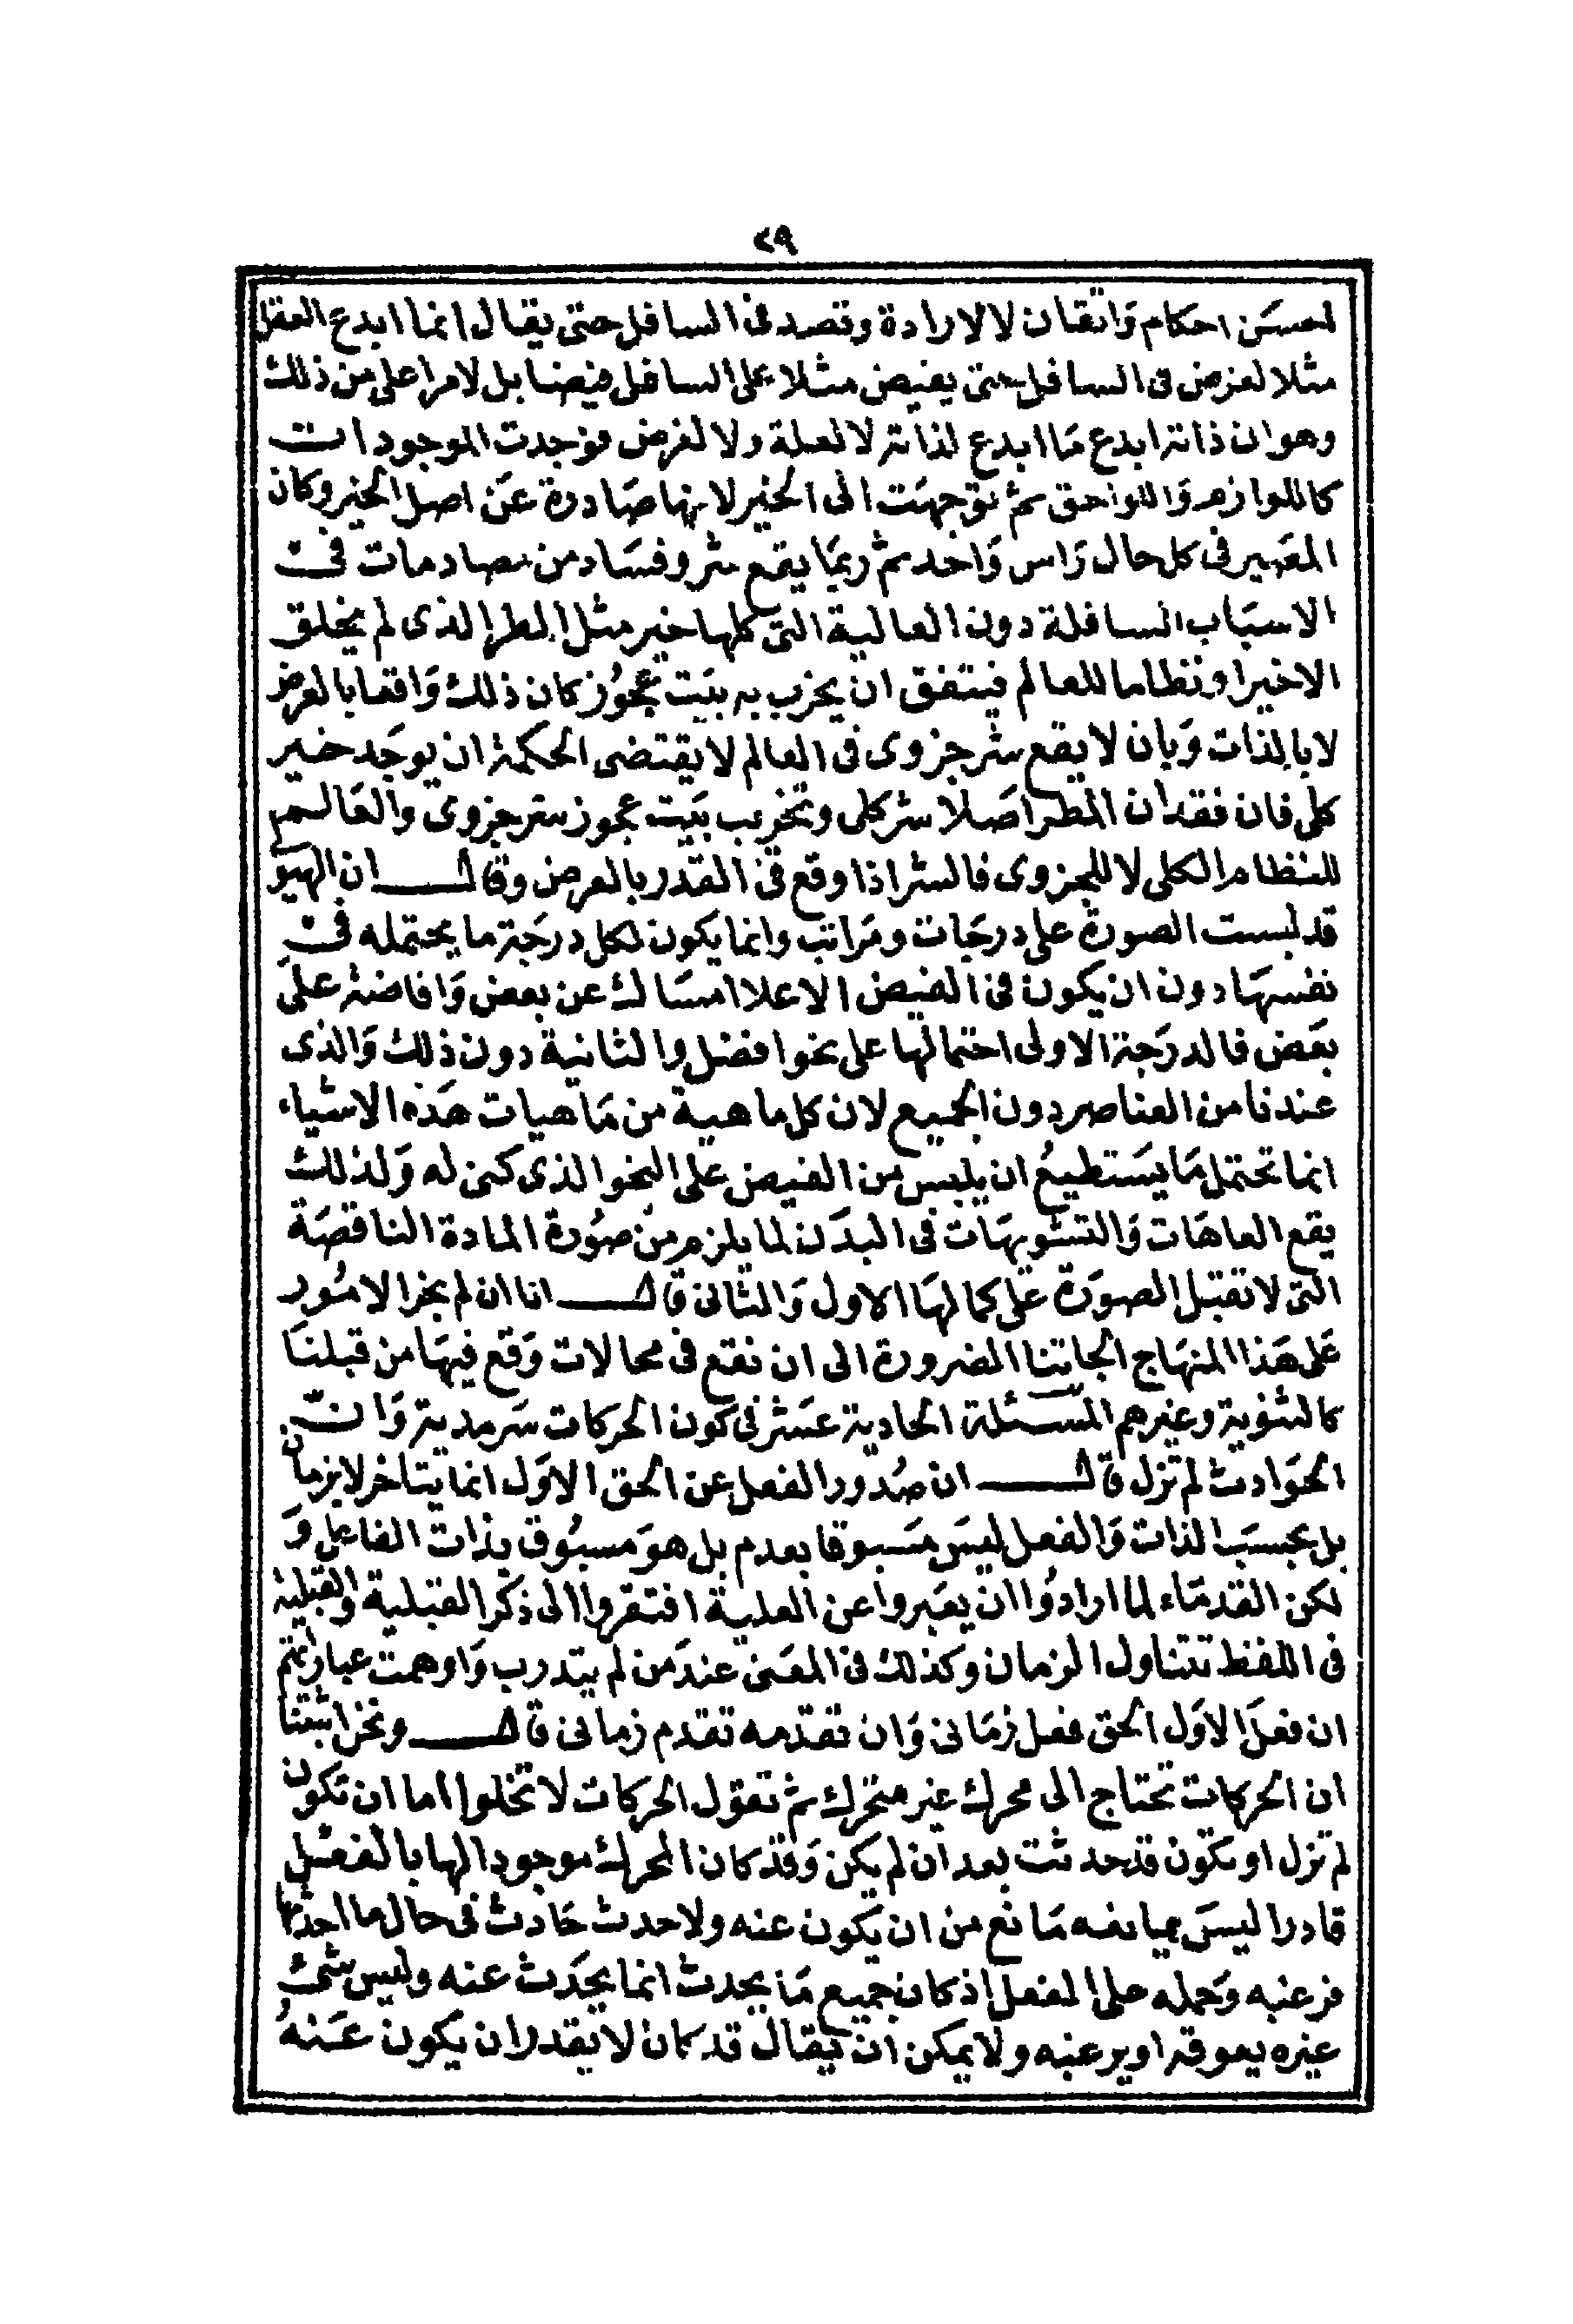 ٢٩
لحسن احكام وَاتقان لا لارادة وقصد فى السافل حتى يقال انما ابدع العقل
مثلا لغرض فى السافل حتى يفيض مثلا على السافل فيضا بل لامر اعلى من ذلك
وهو ان ذاته ابدع مَا ابدع لذاته لا لعلة ولا لغرض فوجدت الموجودات
كاللوازم وَاللواحق ثم توجهَت الى الخير لانها صَادرة عَن اصل الخير وكان
المصَير فى كل حال رَاس وَاحد ثم ربمَا يقع شر وفسَاد من مصادمات فى
الاسبَاب السافلة دون العالية التى كلها خير مثل المطر الذى لم يخلق
الاخيرا ونظاما للعالم فيتفق ان يخرب به بيَت عجوُز كان ذلك وَاقعا بالعرض
لا بالذات وَبان لا يقع شر جزوى فى العالم لا يقتضى الحكمة ان يوجَد خير
كلى فان فقدان المطر اصَلا شر كلى وتخريب بيَت عجوز شر جزوى والعَالم
للنظام الكلى لا للجزوى فالشر اذا وقع فى القدر بالعرض وقال ان الهيو
قد لبست الصورة على درجَات ومَراتب وانما يكون لكل درجَة ما يحتمله فى
نفسهَا دون ان يكون فى الفيض الاعلا امسَاك عن بعض وَافاضة على
بعَض فالدرَجة الاولى احتمالها على نحو افضل والثانية دون ذلك وَالذى
عندنا من العناصر دون الجميع لان كل ماهية من مَاهيات هَذه الاشياء
انما تحتمل مَا يسَتطيعُ ان يلبس من الفيض على النحو الذى كنى له وَلذلك
يقع العاهَات وَالتشويهَات فى البدَن لما يلزم من صوُرة المادة الناقصَة
التى لا تقبل الصورَة على كمالهَا الاول وَالثانى قال انا ان لم بخر الامُور
عَلى هَذا المنهَاج الجاتنا الضرورة الى ان نقع فى محالات وَقع فيهَا من قبلنَا
كالثنوية وغيرهم المسَئلة الحادية عشر فى كون الحركات سَرمدية وَان
الحوَادث لم تزل قال ان صُدور الفعل عن الحق الاوَل انما يتاخر لا بزمان
بل بحسَب الذات وَالفعل ليسَ مسَبوقا بعدم بل هوَ مسبوُق بذات الفاعل وَ
لكن القدمَاء لما ارادوُا ان يعَبروا عن العلية افتقروا الى ذكر القبلية والقبلية
فى اللفظ تتناول الزمان وكذلك فى المعَنى عندَ من لم يتدرب وَاوهمت عباراتهم
ان فعلَ الاوَل الحق فعل زمَانى وَان تقدّمه تقدم زمانى قال ونحن اثبتنا
ان الحركات تحتاج الى محرك غير متحرك ثم تقول الحركات لا تخلوا اما ان تكون
لم تزل او تكون قد حدثت بعد ان لم يكن وَقد كان المحرك موجودا لها بالفعَل
قادرا ليسَ يمانعه مَانع من ان يكون عنه ولا حدث حَادث فى حال ما احدثها
فرغبه وَحمله على الفعل اذ كان جميع مَا يحدث انما يحدَث عنه وليس شئ
غيره يعوقه او يرغبه ولا يمكن ان يقال قد كان لا يقدر ان يكون عَنهُ